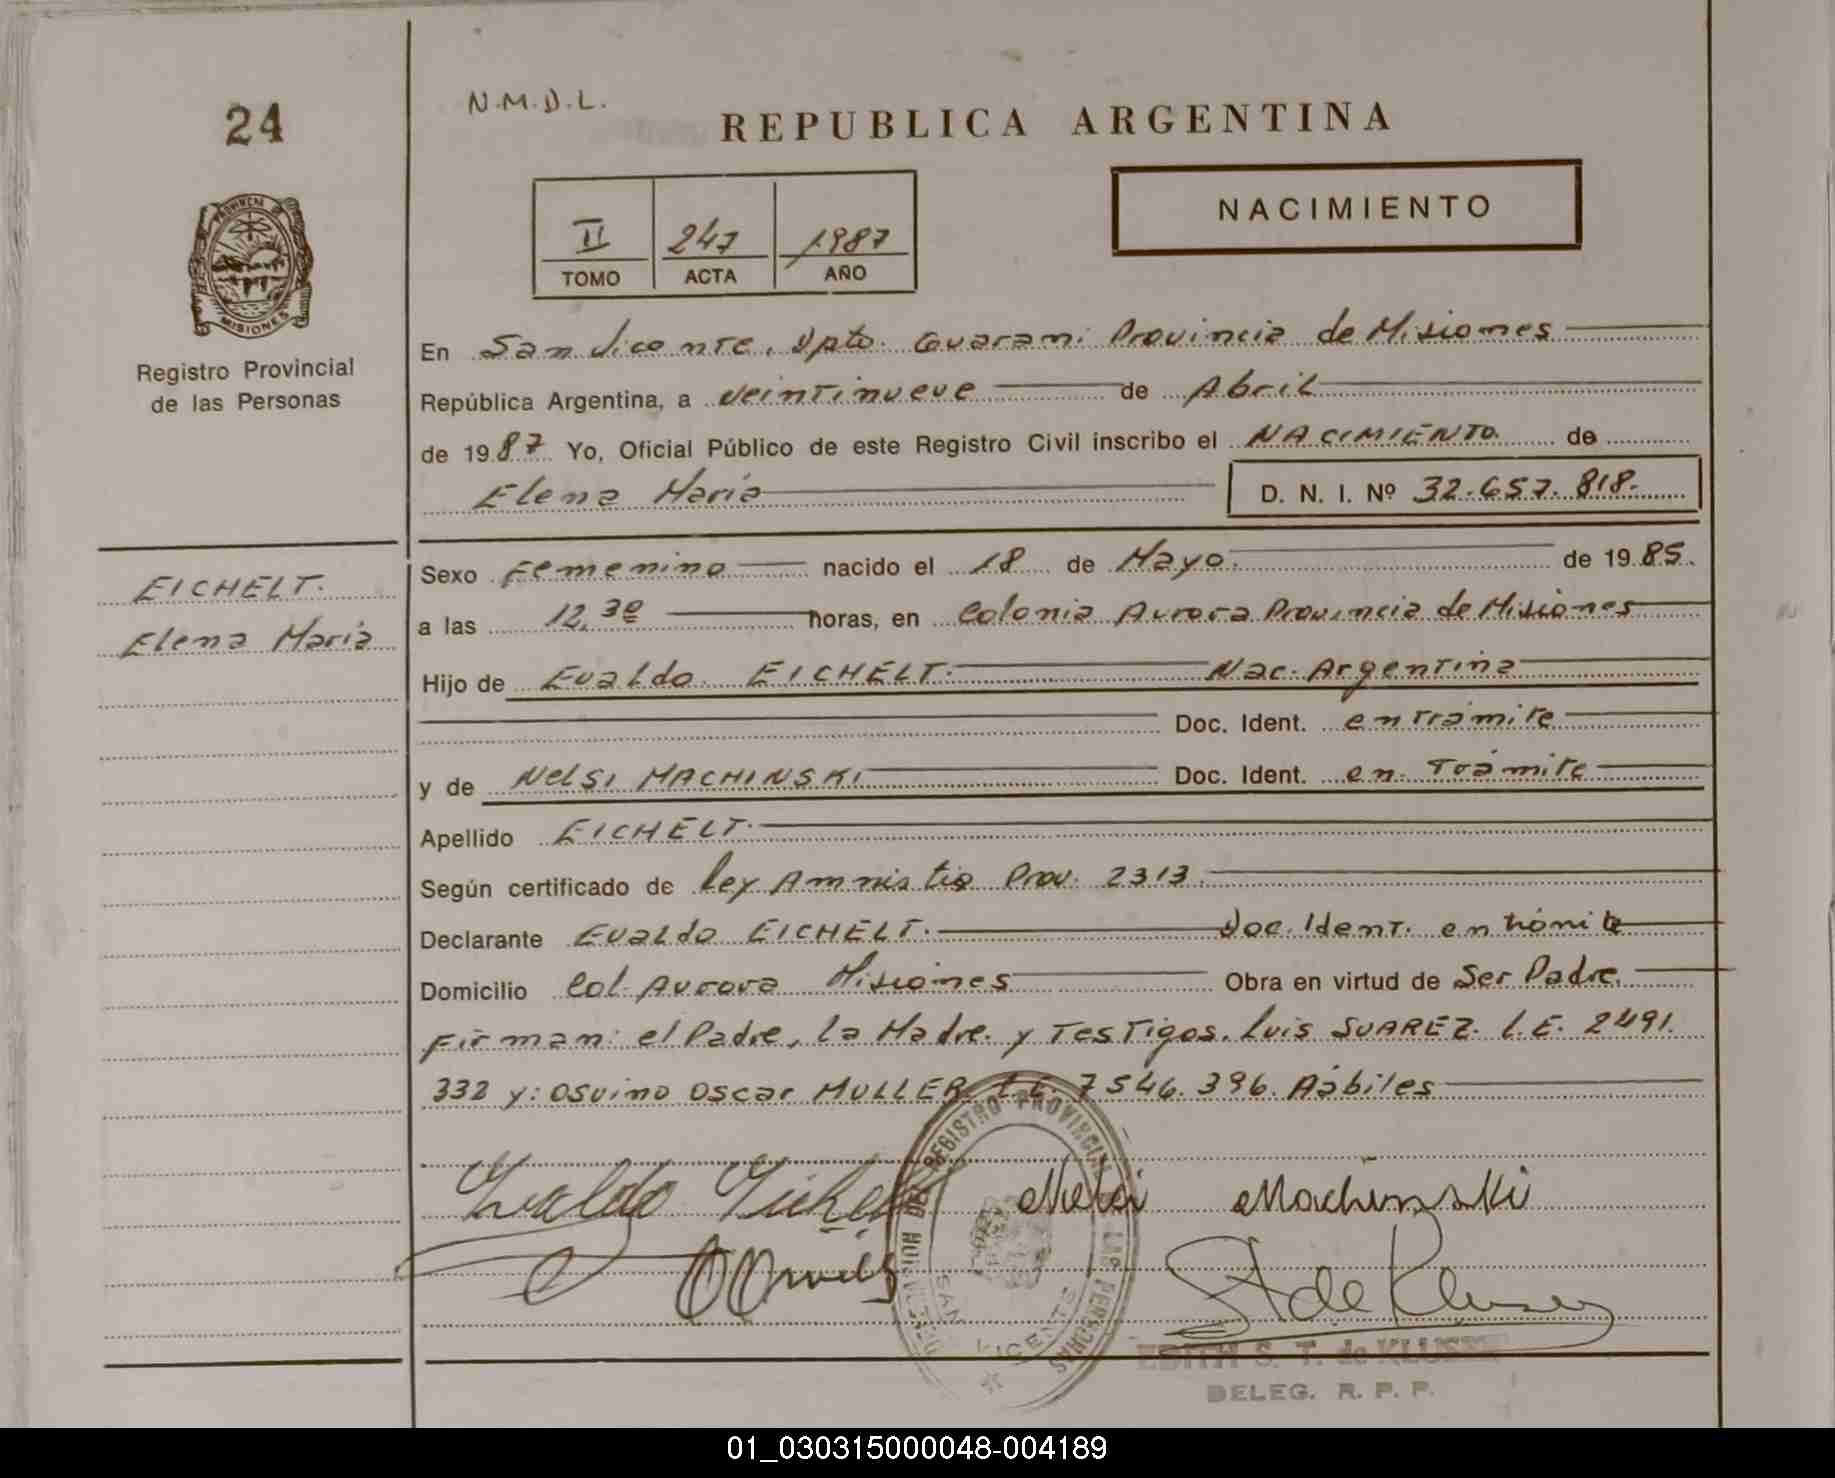 24
N.M.D.L.
REPUBLICA ARGENTINA
PROVINCIA DE
MISIONES
Registro Provincial
de las Personas
II 247 1987
TOMO ACTA AÑO
NACIMIENTO
En San Vicente, Dpto. Guarani Provincia de Misiones
República Argentina, a veintinueve de Abril
de 1987 Yo, Oficial Público de este Registro Civil inscribo el NACIMIENTO. de
Elena Maria D. N. I. Nº 32.657.818.
EICHELT.
Elena Maria
Sexo Femenino nacido el 18 de Mayo. de 1985.
a las 12,30 horas, en Colonia Aurora Provincia de Misiones
Hijo de Evaldo EICHELT. Nac. Argentina
Doc. Ident. en tramite
y de Nelsi MACHINSKI Doc. Ident. en Trámite
Apellido EICHELT.
Según certificado de Ley Amnistia Prov. 2313.
Declarante Evaldo EICHELT. Doc. Ident. en trámite
Domicilio Col. Aurora Misiones Obra en virtud de Ser Padre.
Firman: el Padre, la Madre. y Testigos. Luis SUAREZ. L.E. 2491.
332 y: Osvino Oscar MULLER L.E. 7546.396. Aábiles
Evaldo Eichelt Nelsi Machinski
REGISTRO PROVINCIAL DE LAS PERSONAS
SAN VICENTE
EDITH S. T. de KLUSSE
DELEG. R. P. P.
01_030315000048-004189